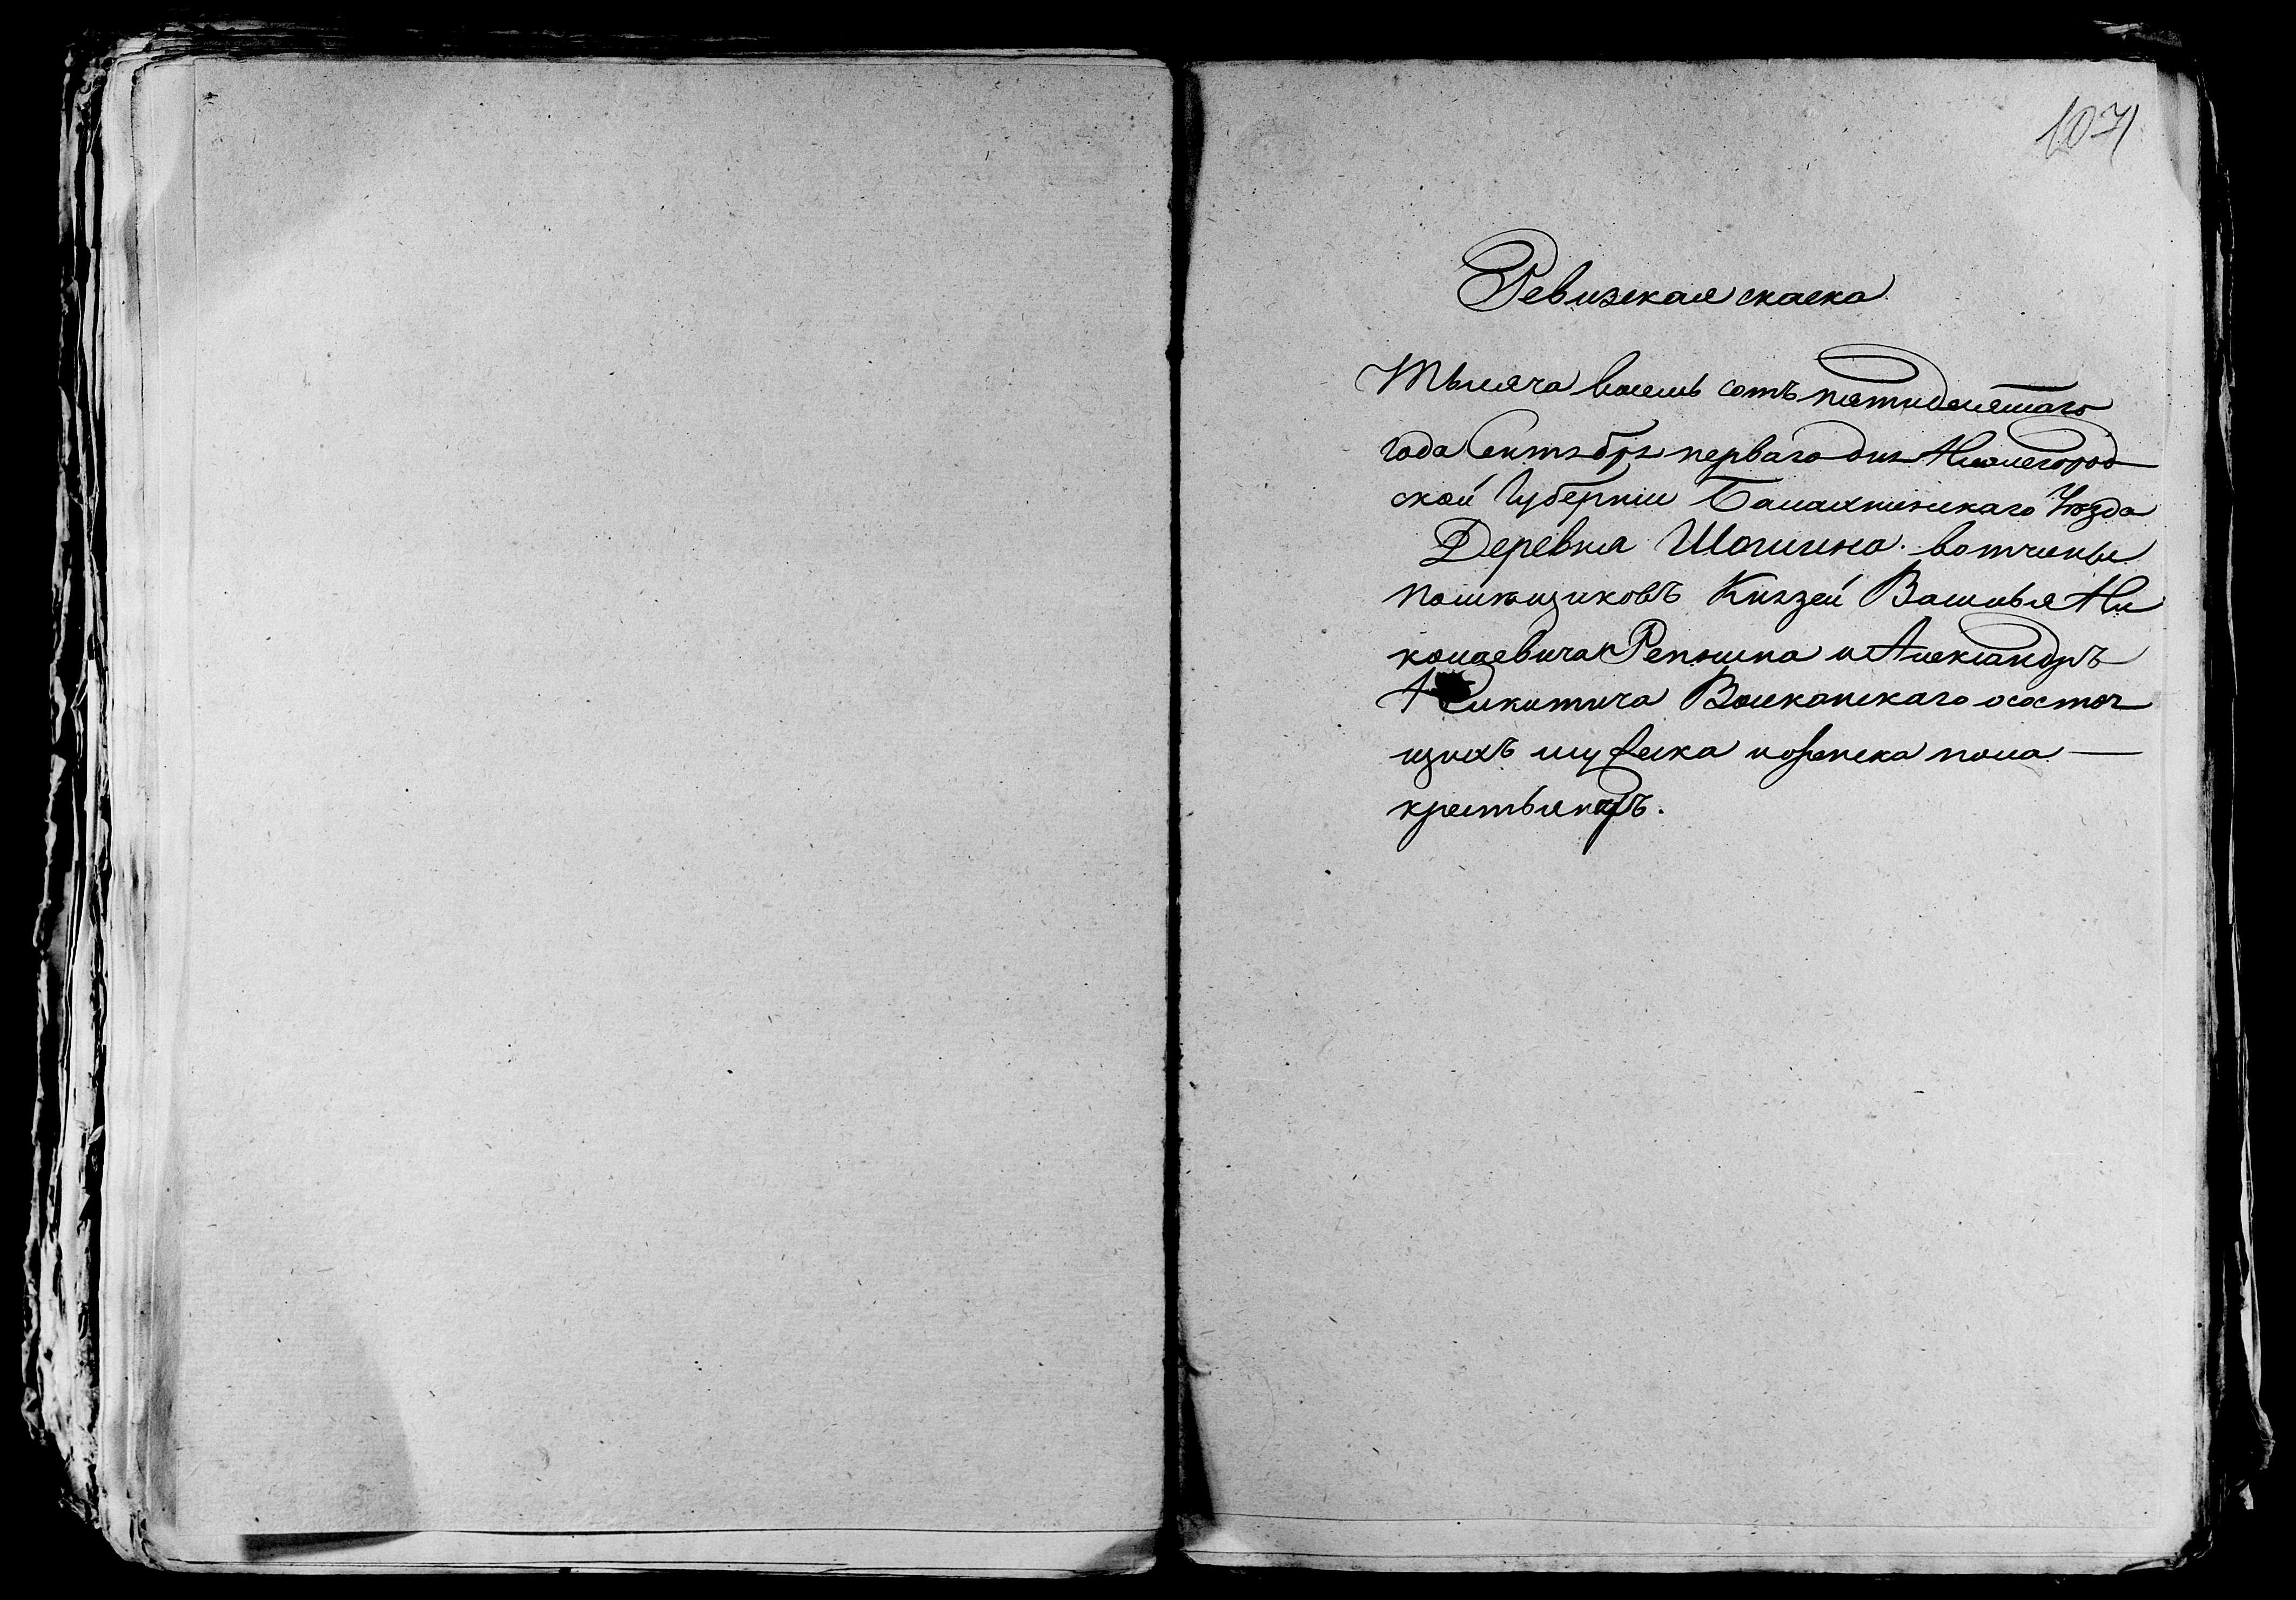 107
Ревизская скаска
Тысяча восемь сотъ пятидесятаго
года Сентября перваго дня Нижегород
ской Губерніи Балахнинскаго Уѣзда
Деревня Шишина вотчины
помѣщиковъ Князей Василья Ни
колаевича Репнина и Александръ
Никитича Волконскаго осостоя
щихъ мужеска и женска пола —
крестьянѣхъ.